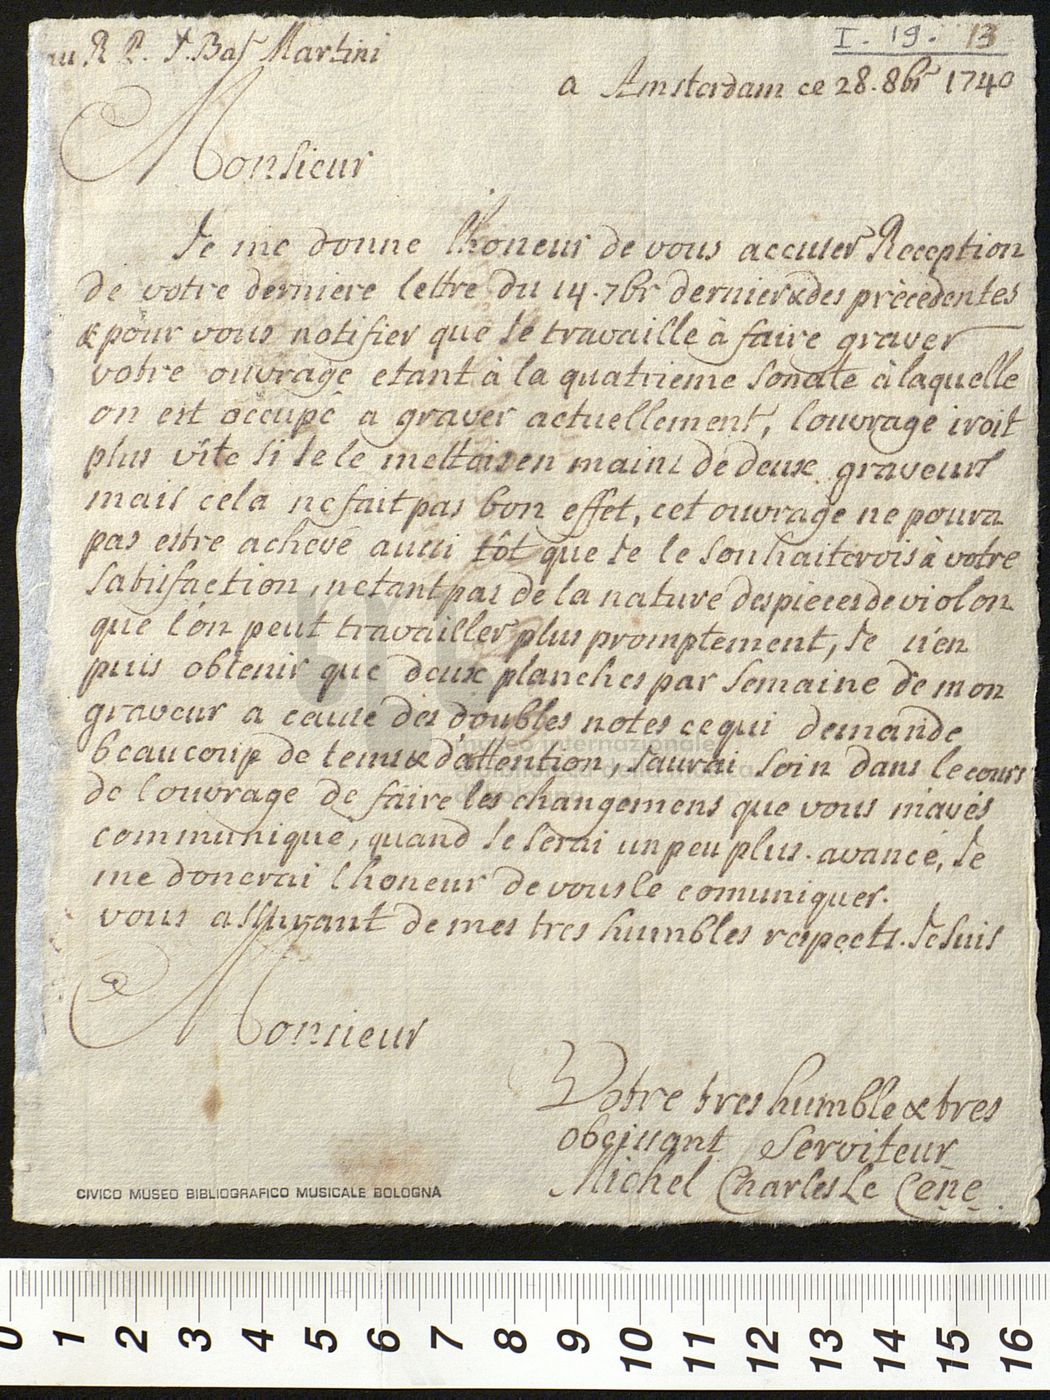 au R P. J. Bat Martini
I. 19. 13
a Amsterdam ce 28. 8br 1740
Monsieur
Je me donne l'honeur de vous accuser Reception
de votre derniere lettre du 14. 7br dernier & des précèdentes
& pour vous notifier que Je travaille à faire graver
votre ouvrage etant à la quatrieme Sonate à laquelle
on est occupé a graver actuellement, louvrage iroit
plus vite Si Je le mettais en mains de deux graveurs
mais cela ne fait pas bon effet, cet ouvrage ne poura
pas estre achevé aussi tôt que Je le Souhaiterois à votre
Satisfaction, netant pas de la nature des pieces de violon
que l'on peut travailler plus promptement, Je n'en
puis obtenir que deux planches par Semaine de mon
graveur a cause des doubles notes ce qui demande
beaucoup de tems & d'attention, J'aurai Soin dans le cours
de louvrage de faire les changemens que vous m'avés
communiqué, quand Je Serai un peu plus avancé, Je
me donerai lhoneur de vous le comuniquer.
vous assurant de mes tres humbles respects. Je Suis
Monsieur
Votre tres humble & tres
obeissant Serviteur
Michel Charles Le Cene.
museo internazionale
CIVICO MUSEO BIBLIOGRAFICO MUSICALE BOLOGNA
0 1 2 3 4 5 6 7 8 9 10 11 12 13 14 15 16